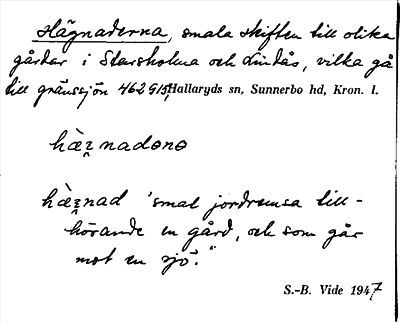 Hägnaderna, smala skiften till olika
gårdar i Starsholma och Lindås, vilka gå
till gränssjön 462 G15, Hallaryds sn, Sunnerbo hd, Kron. l.
hæ̀ʐnadənə
hæ̀ʐnad 'smal jordremsa till-
hörande en gård, och som går
mot en sjö.'
S.-B. Vide 1947